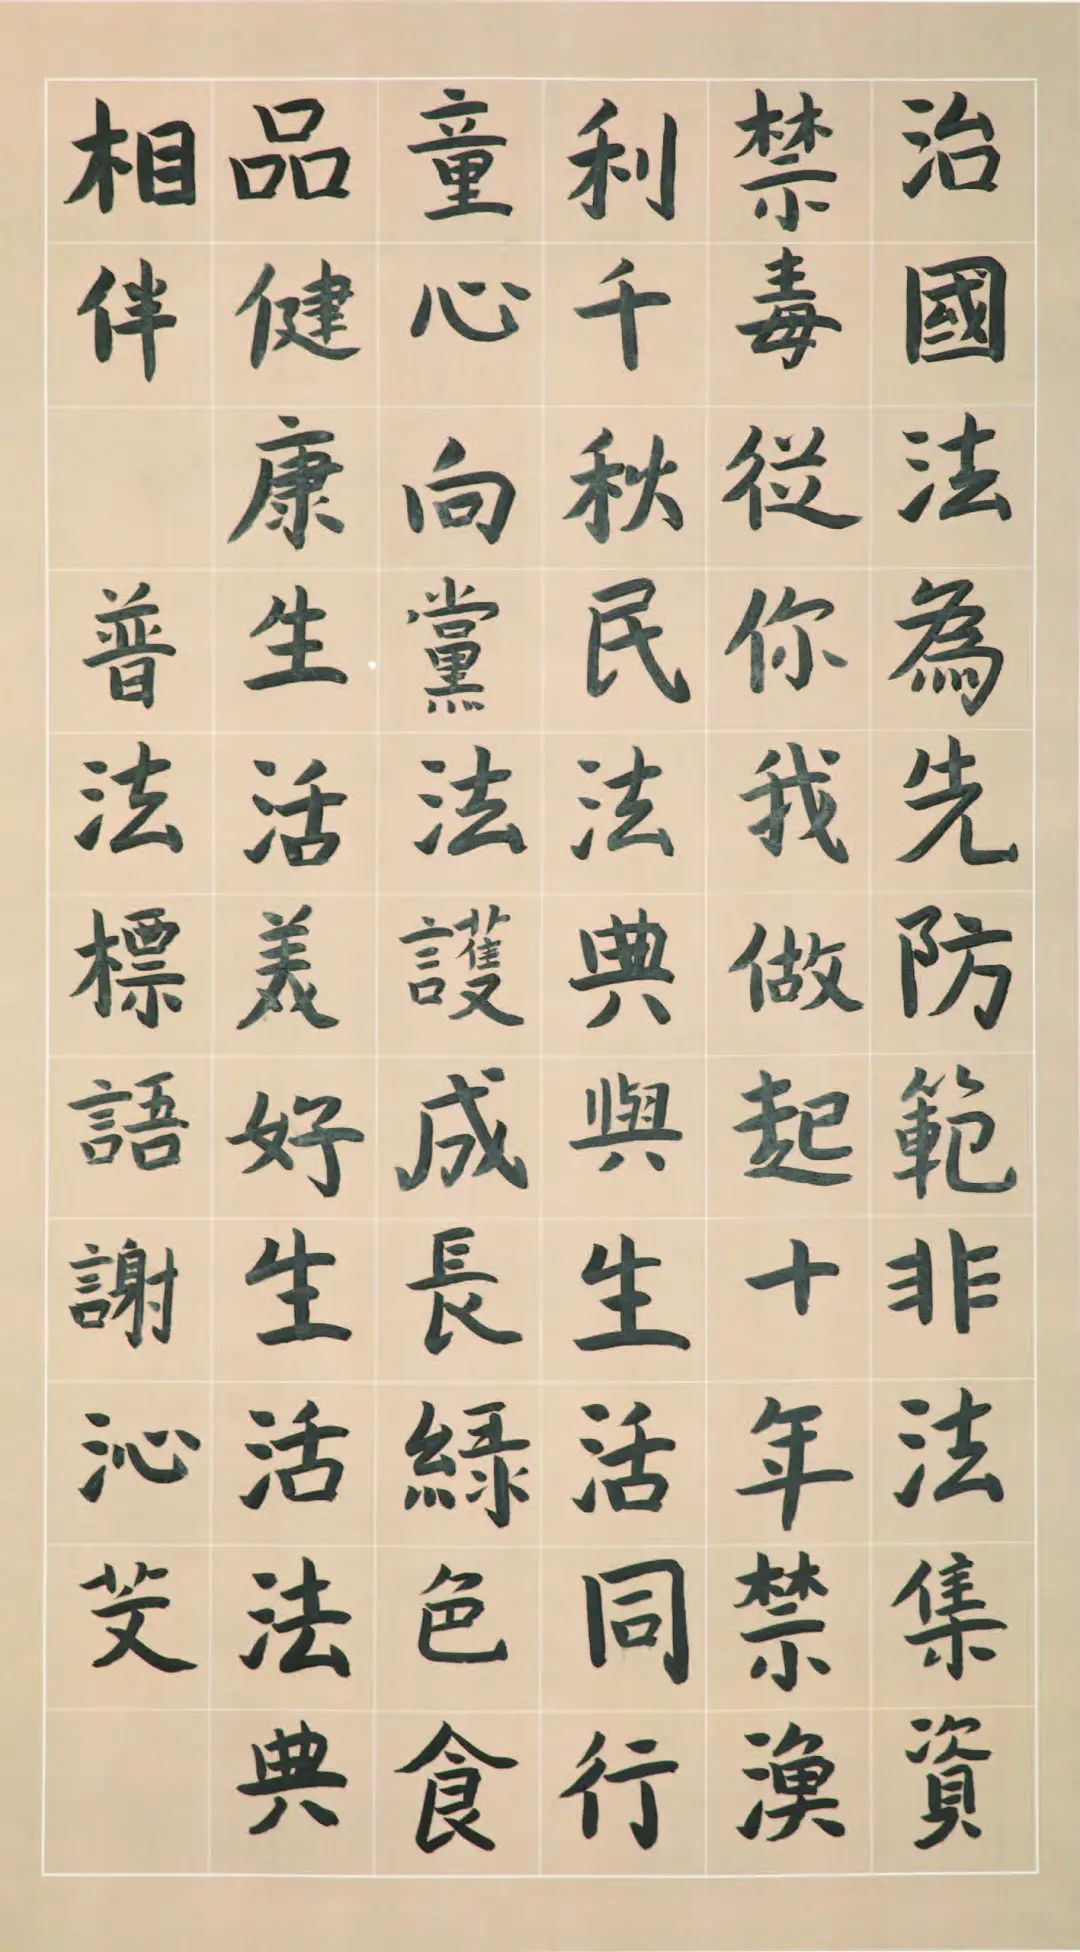 治國法為先防範非法集資
禁毒從你我做起十年禁漁
利千秋民法典與生活同行
童心向黨法護成長綠色食
品健康生活美好生活法典
相伴 普法標語謝沁芠